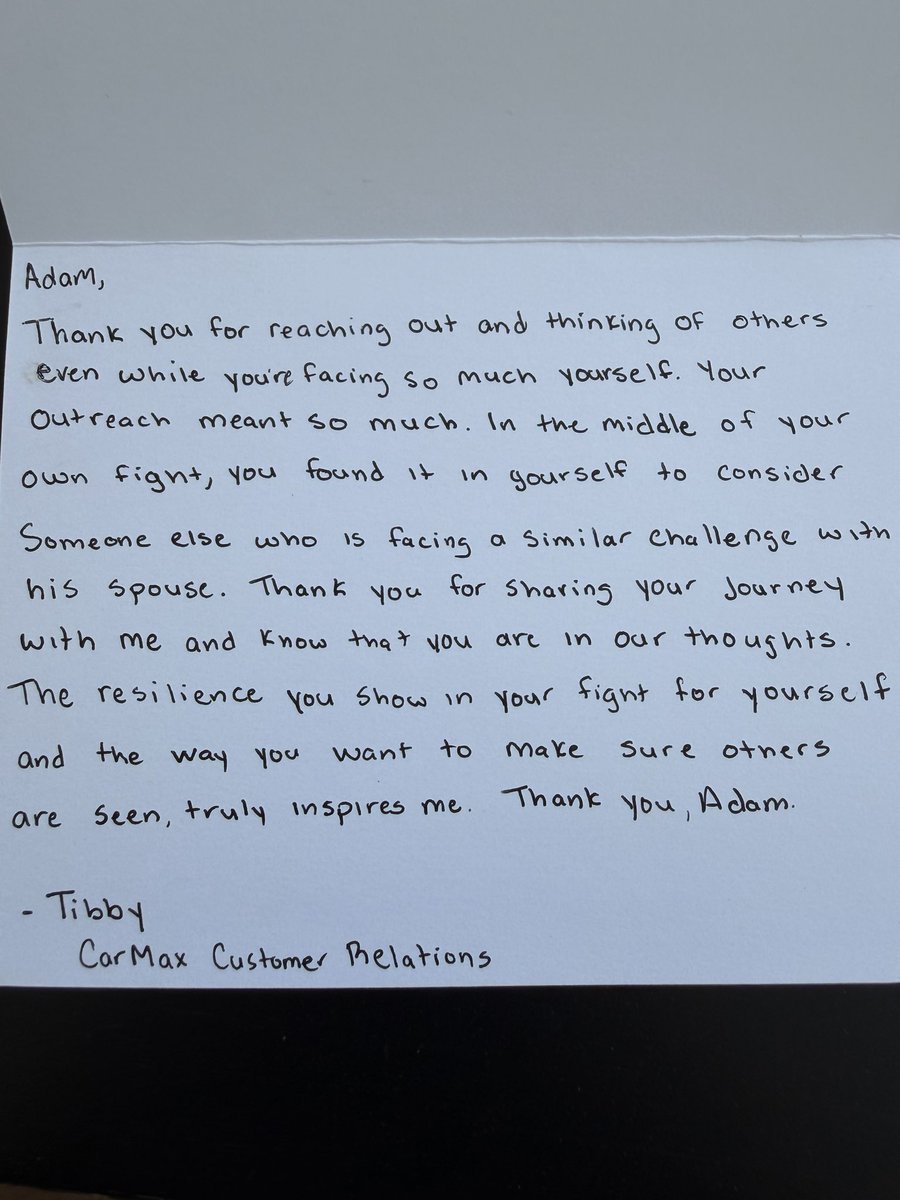 Adam,
Thank you for reaching out and thinking of others
even while you're facing so much yourself. Your
Outreach meant so much. In the middle of your
own fight, you found it in yourself to consider
Someone else who is facing a similar challenge with
his spouse. Thank you for sharing your journey
with me and know that you are in our thoughts.
The resilience you show in your fight for yourself
and the way you want to make sure others
are seen, truly inspires me. Thank you, Adam.
- Tibby
CarMax Customer Relations